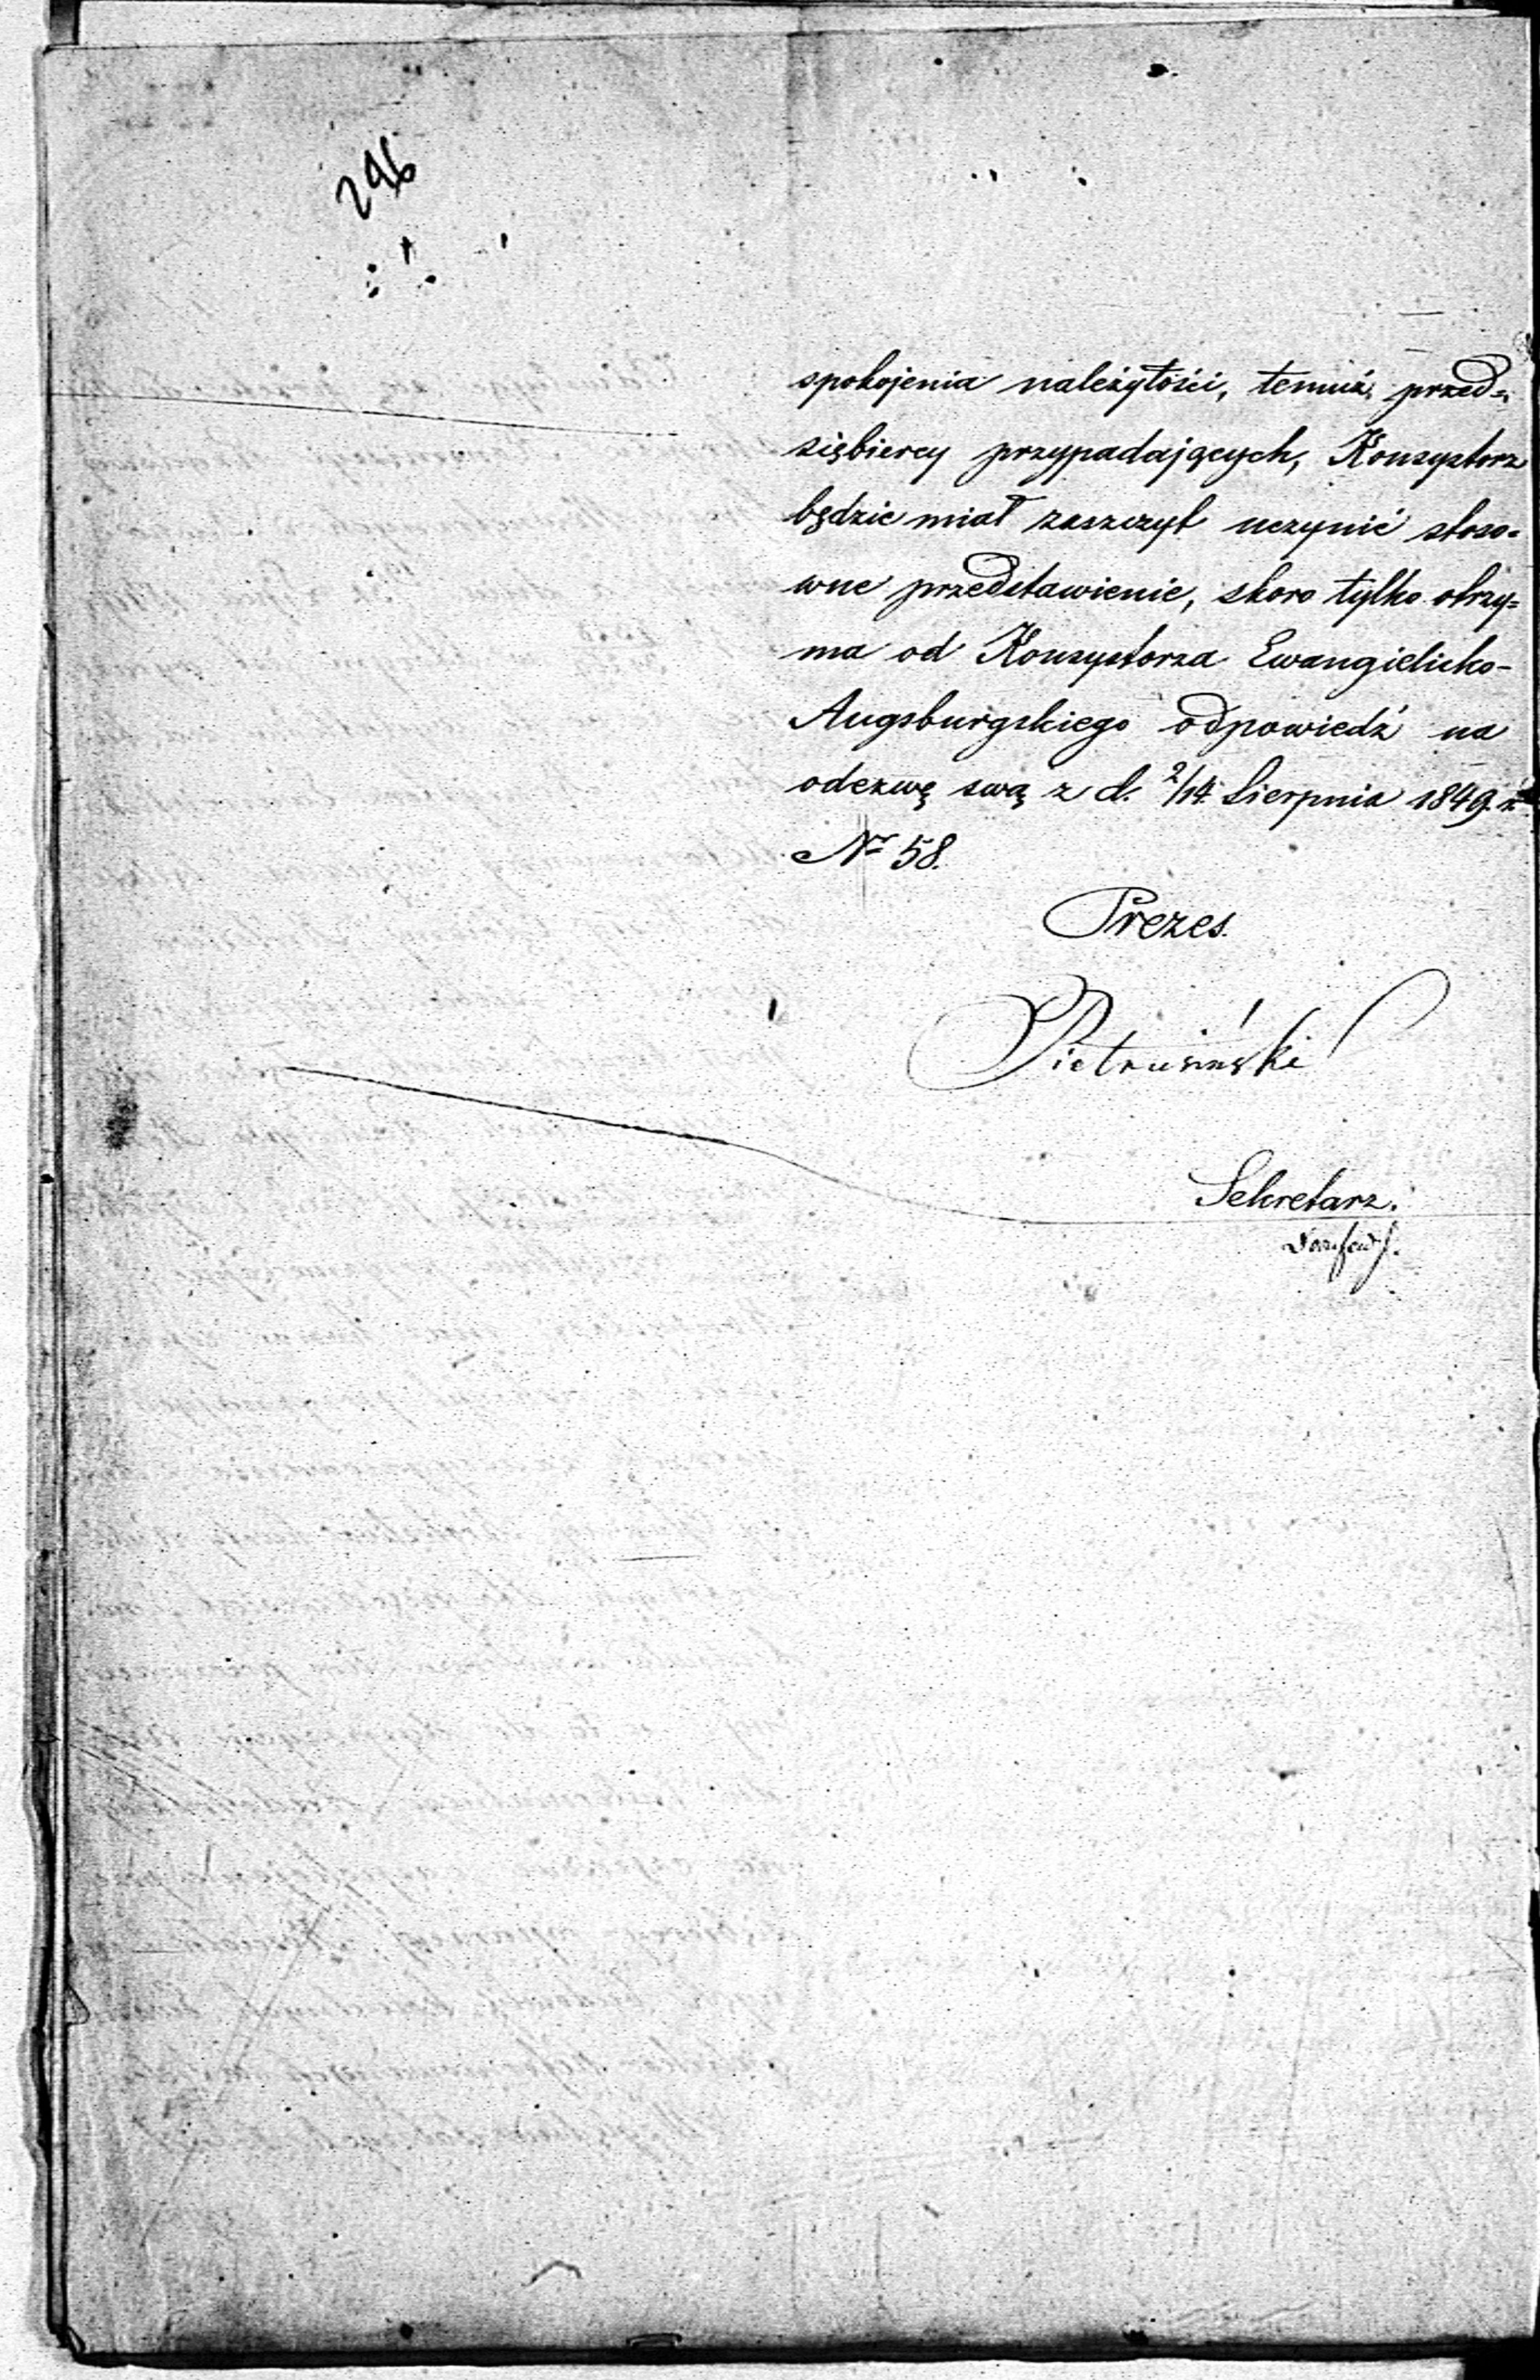 296
spokojenia należytości, temuż przed-
siębiercy przypadających, Konsystorz
będzie miał zaszczyt uczynić stoso-
wne przedstawienie, skoro tylko otrzy-
ma od Konsystorza Ewangielicko-
Augsburgskiego odpowiedź na
odezwę swą z d. 2/14 Sierpnia 1849 r.
Nr 58.
Prezes.
Pietrusiński
Sekretarz.